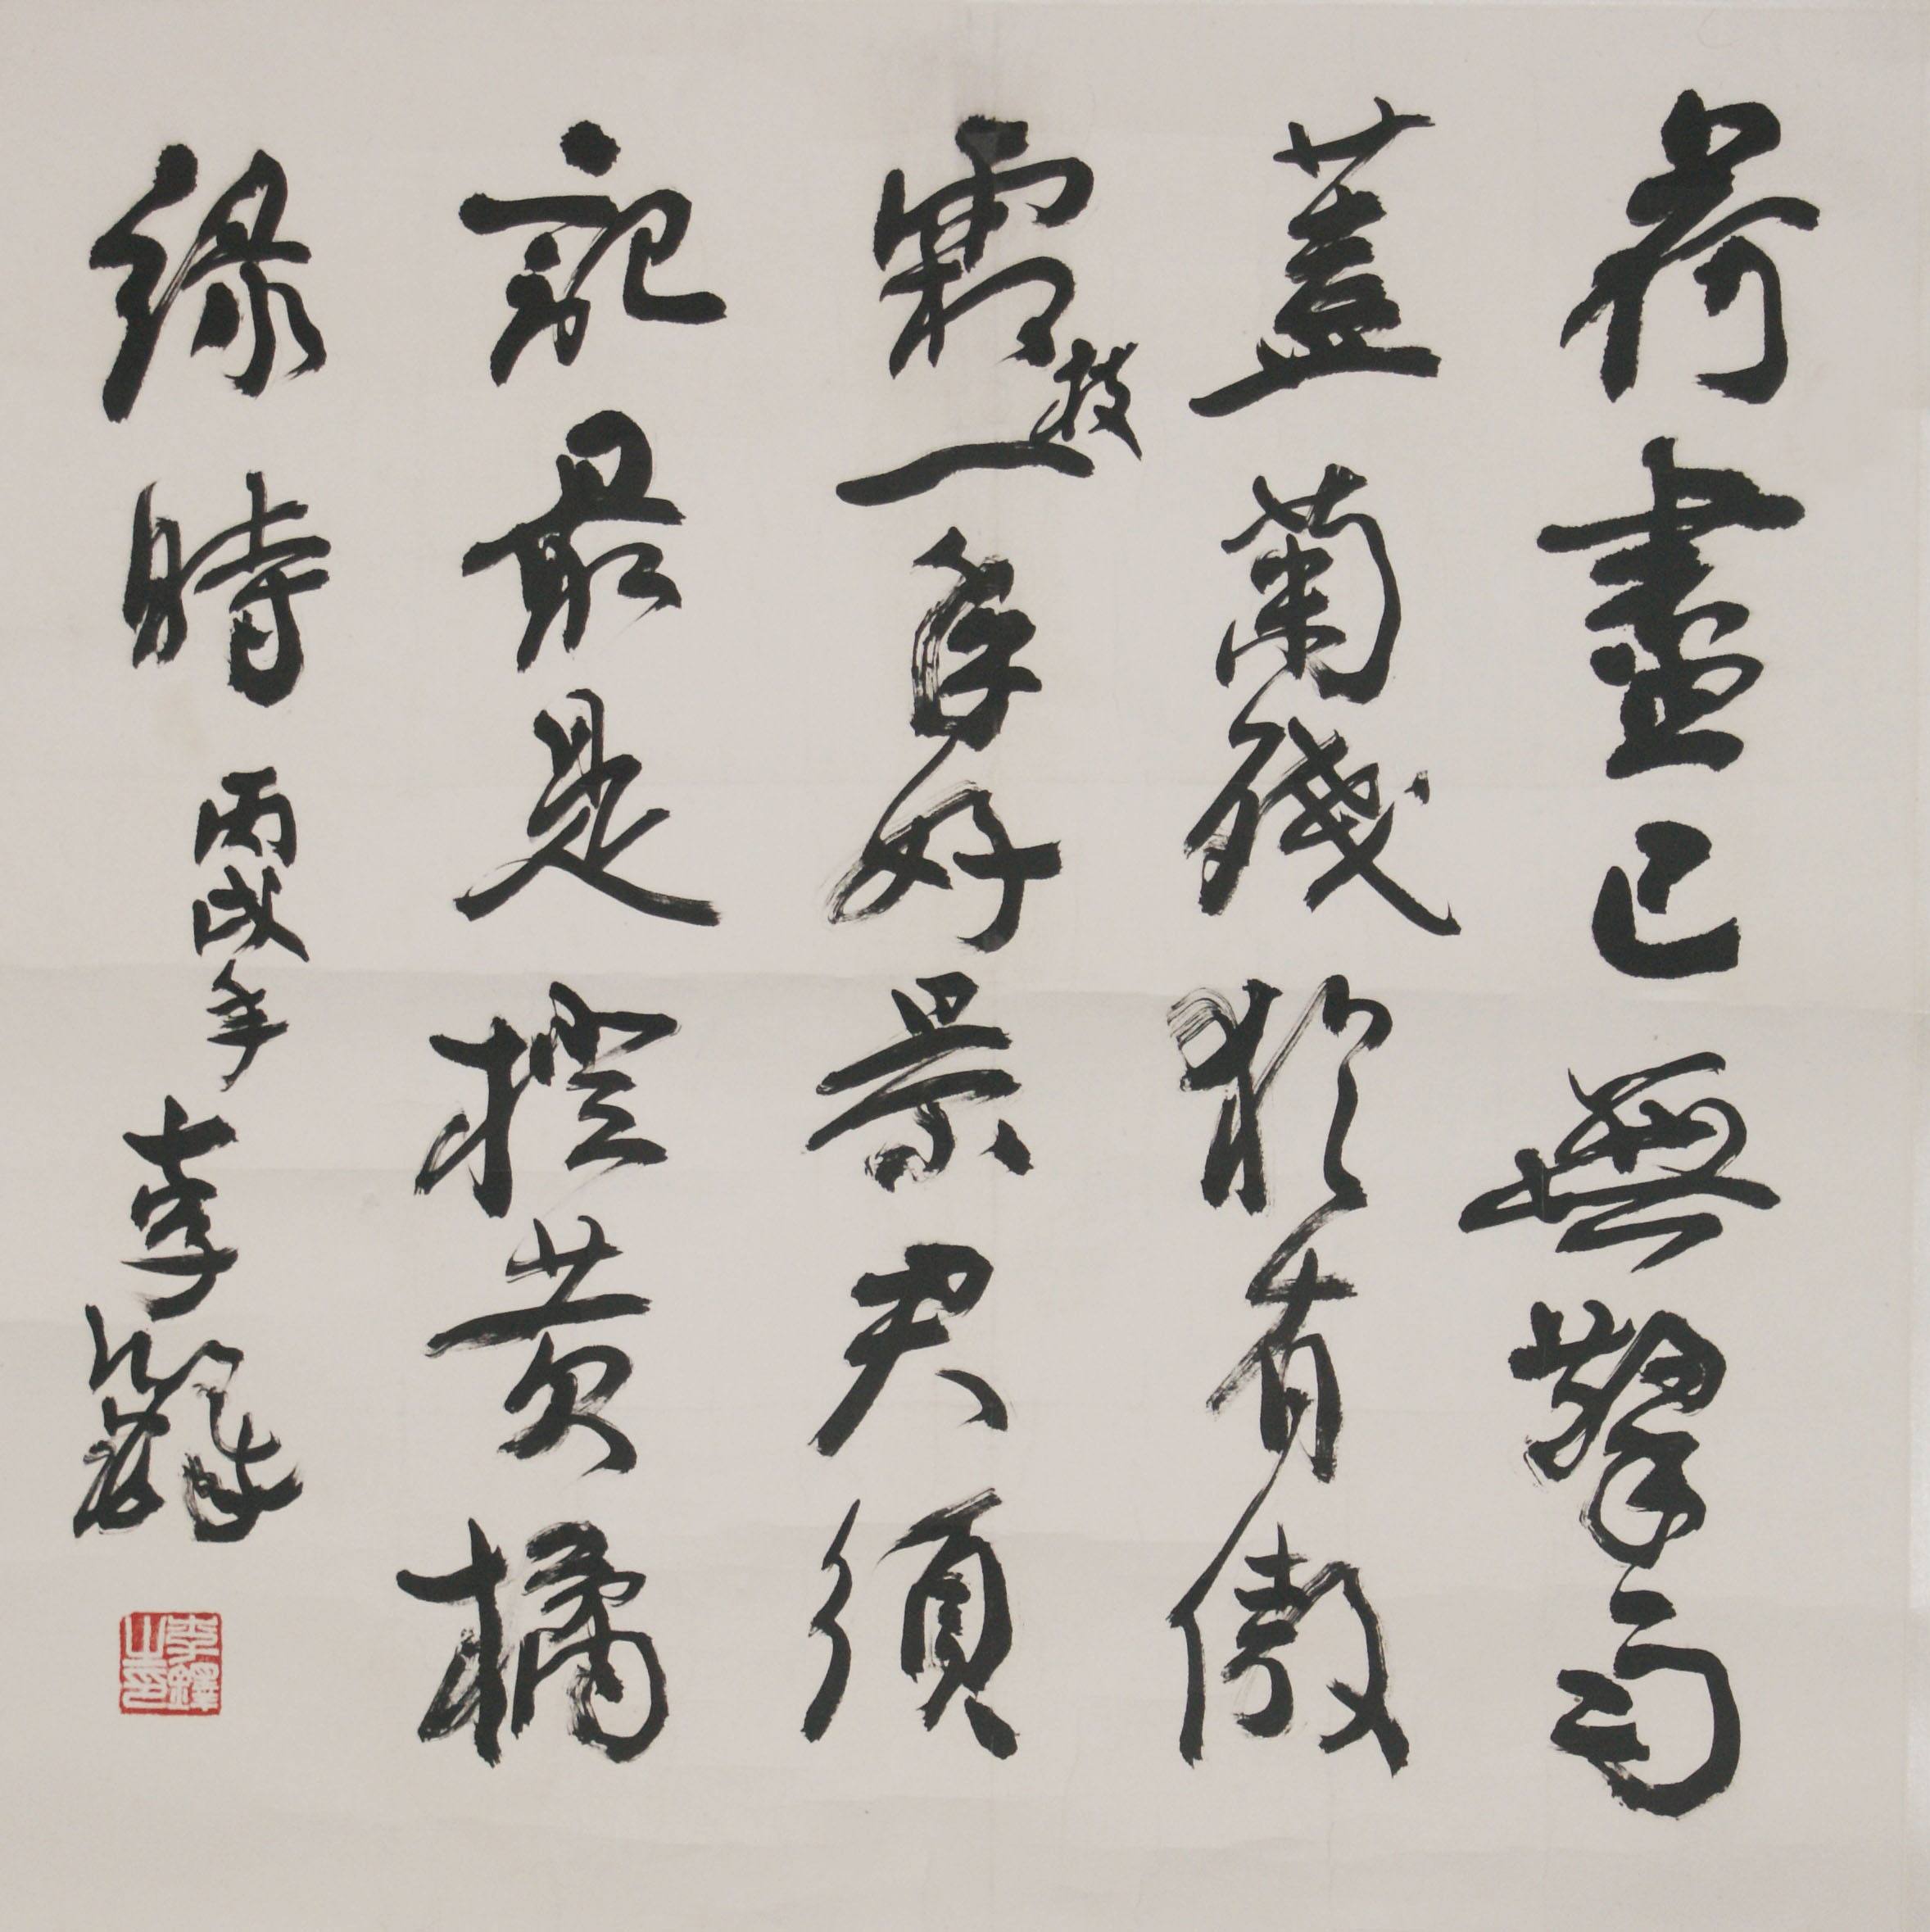 荷盡已無擎雨
蓋菊殘猶有傲
霜枝一年好景君須
記最是橙黄橘
緑時
丙戌年 李鐸
李鐸之印